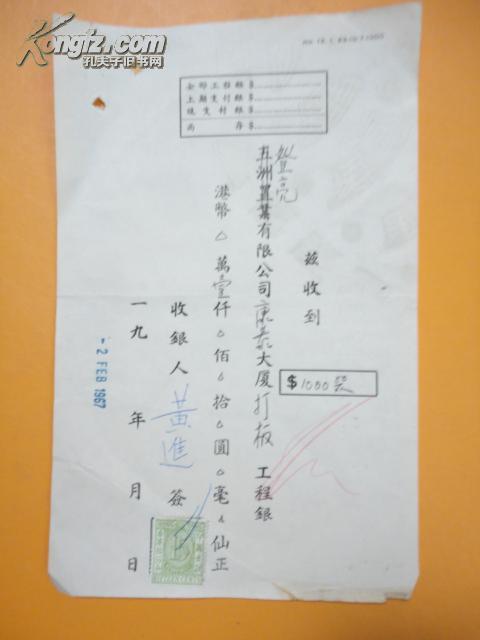 Kongfz.com
孔夫子旧书网
全部工程銀 $
上期支付銀 $
現支付銀 $
尚存 $
茲收到
登亮
五洲置業有限公司康泰大厦打板工程銀
$1000
港幣△萬壹仟△佰△拾△圓△毫△仙正
收銀人黃進簽
一九年月日
2 FEB 1967